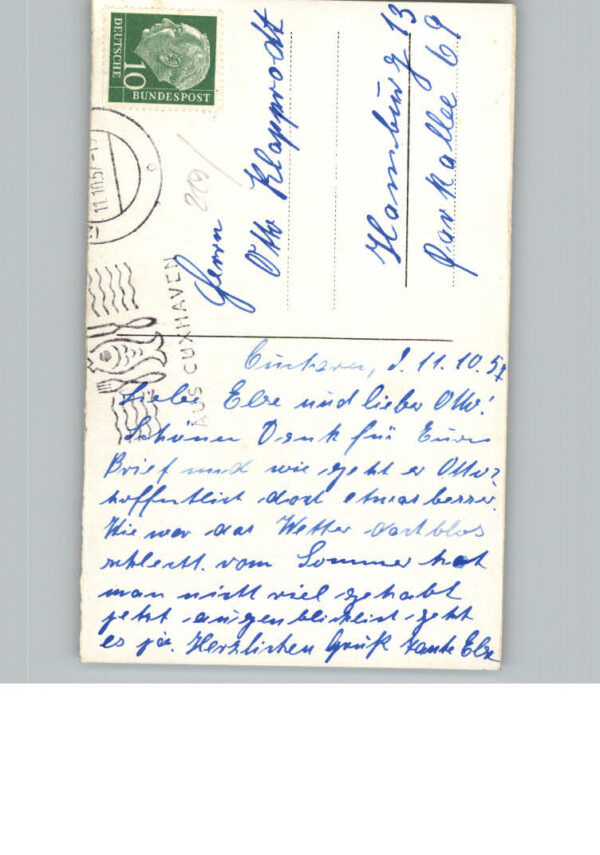 DEUTSCHE
10
BUNDESPOST
11.10.57
AUS CUXHAVEN
Herrn
Otto Klapprodt
Hamburg 13
Parkallee 69
Cuxhaven, d. 11.10.57
Liebe Else und lieber Otto!
Schönen Dank für Euren
Brief und wie geht es Otto?
hoffentlich doch etwas besser.
Wie war das Wetter doch blos
schlecht. vom Sommer hat
man nicht viel gehabt
jetzt augenblicklich geht
es ja. Herzlichen Gruß Tante Else